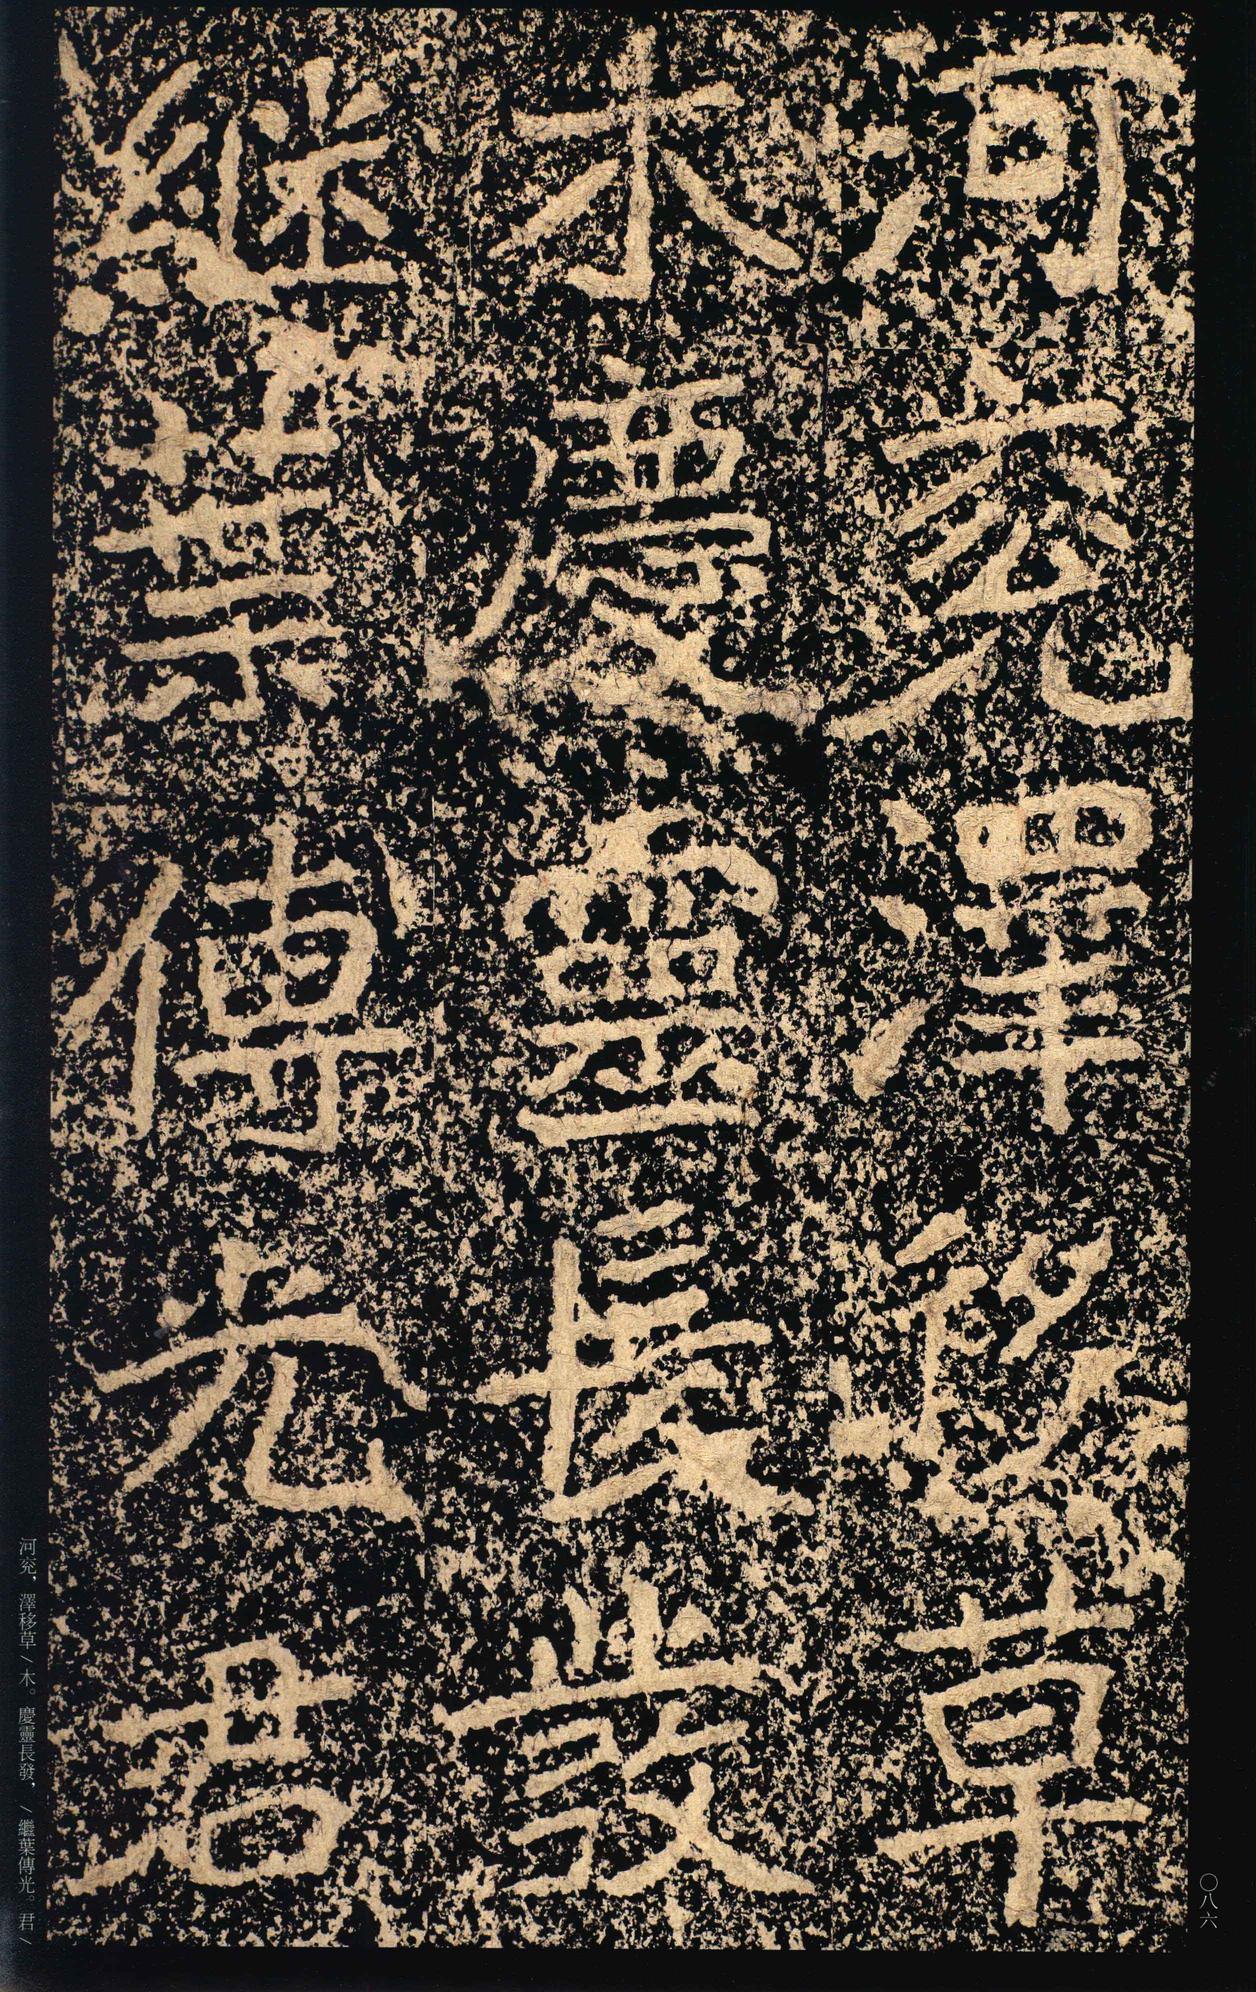 河兖澤移草
木慶靈長發
繼葉傳光君
河兖，澤移草／木。慶靈長發，／繼葉傳光。君／
〇八六